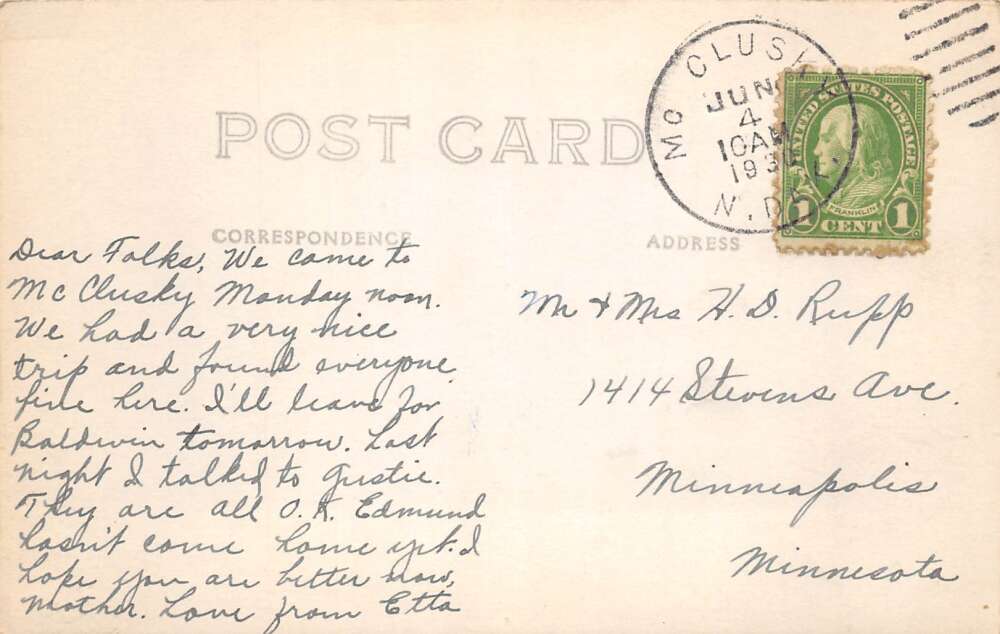 POST CARD
CORRESPONDENCE
ADDRESS
MC CLUSKY
JUN
4
10AM
193
N.DAK.
UNITED STATES POSTAGE
FRANKLIN
1 CENT 1
Dear Folks, We came to
McClusky Monday noon.
We had a very nice
trip and found everyone
fine here. I'll leave for
Baldwin tomorrow. Last
night I talked to Gustie.
They are all O.K. Edmund
hasn't come home yet. I
hope you are better now,
Mother. Love from Etta
Mr + Mrs H. D. Rupp
1414 Stevens Ave.
Minneapolis
Minnesota